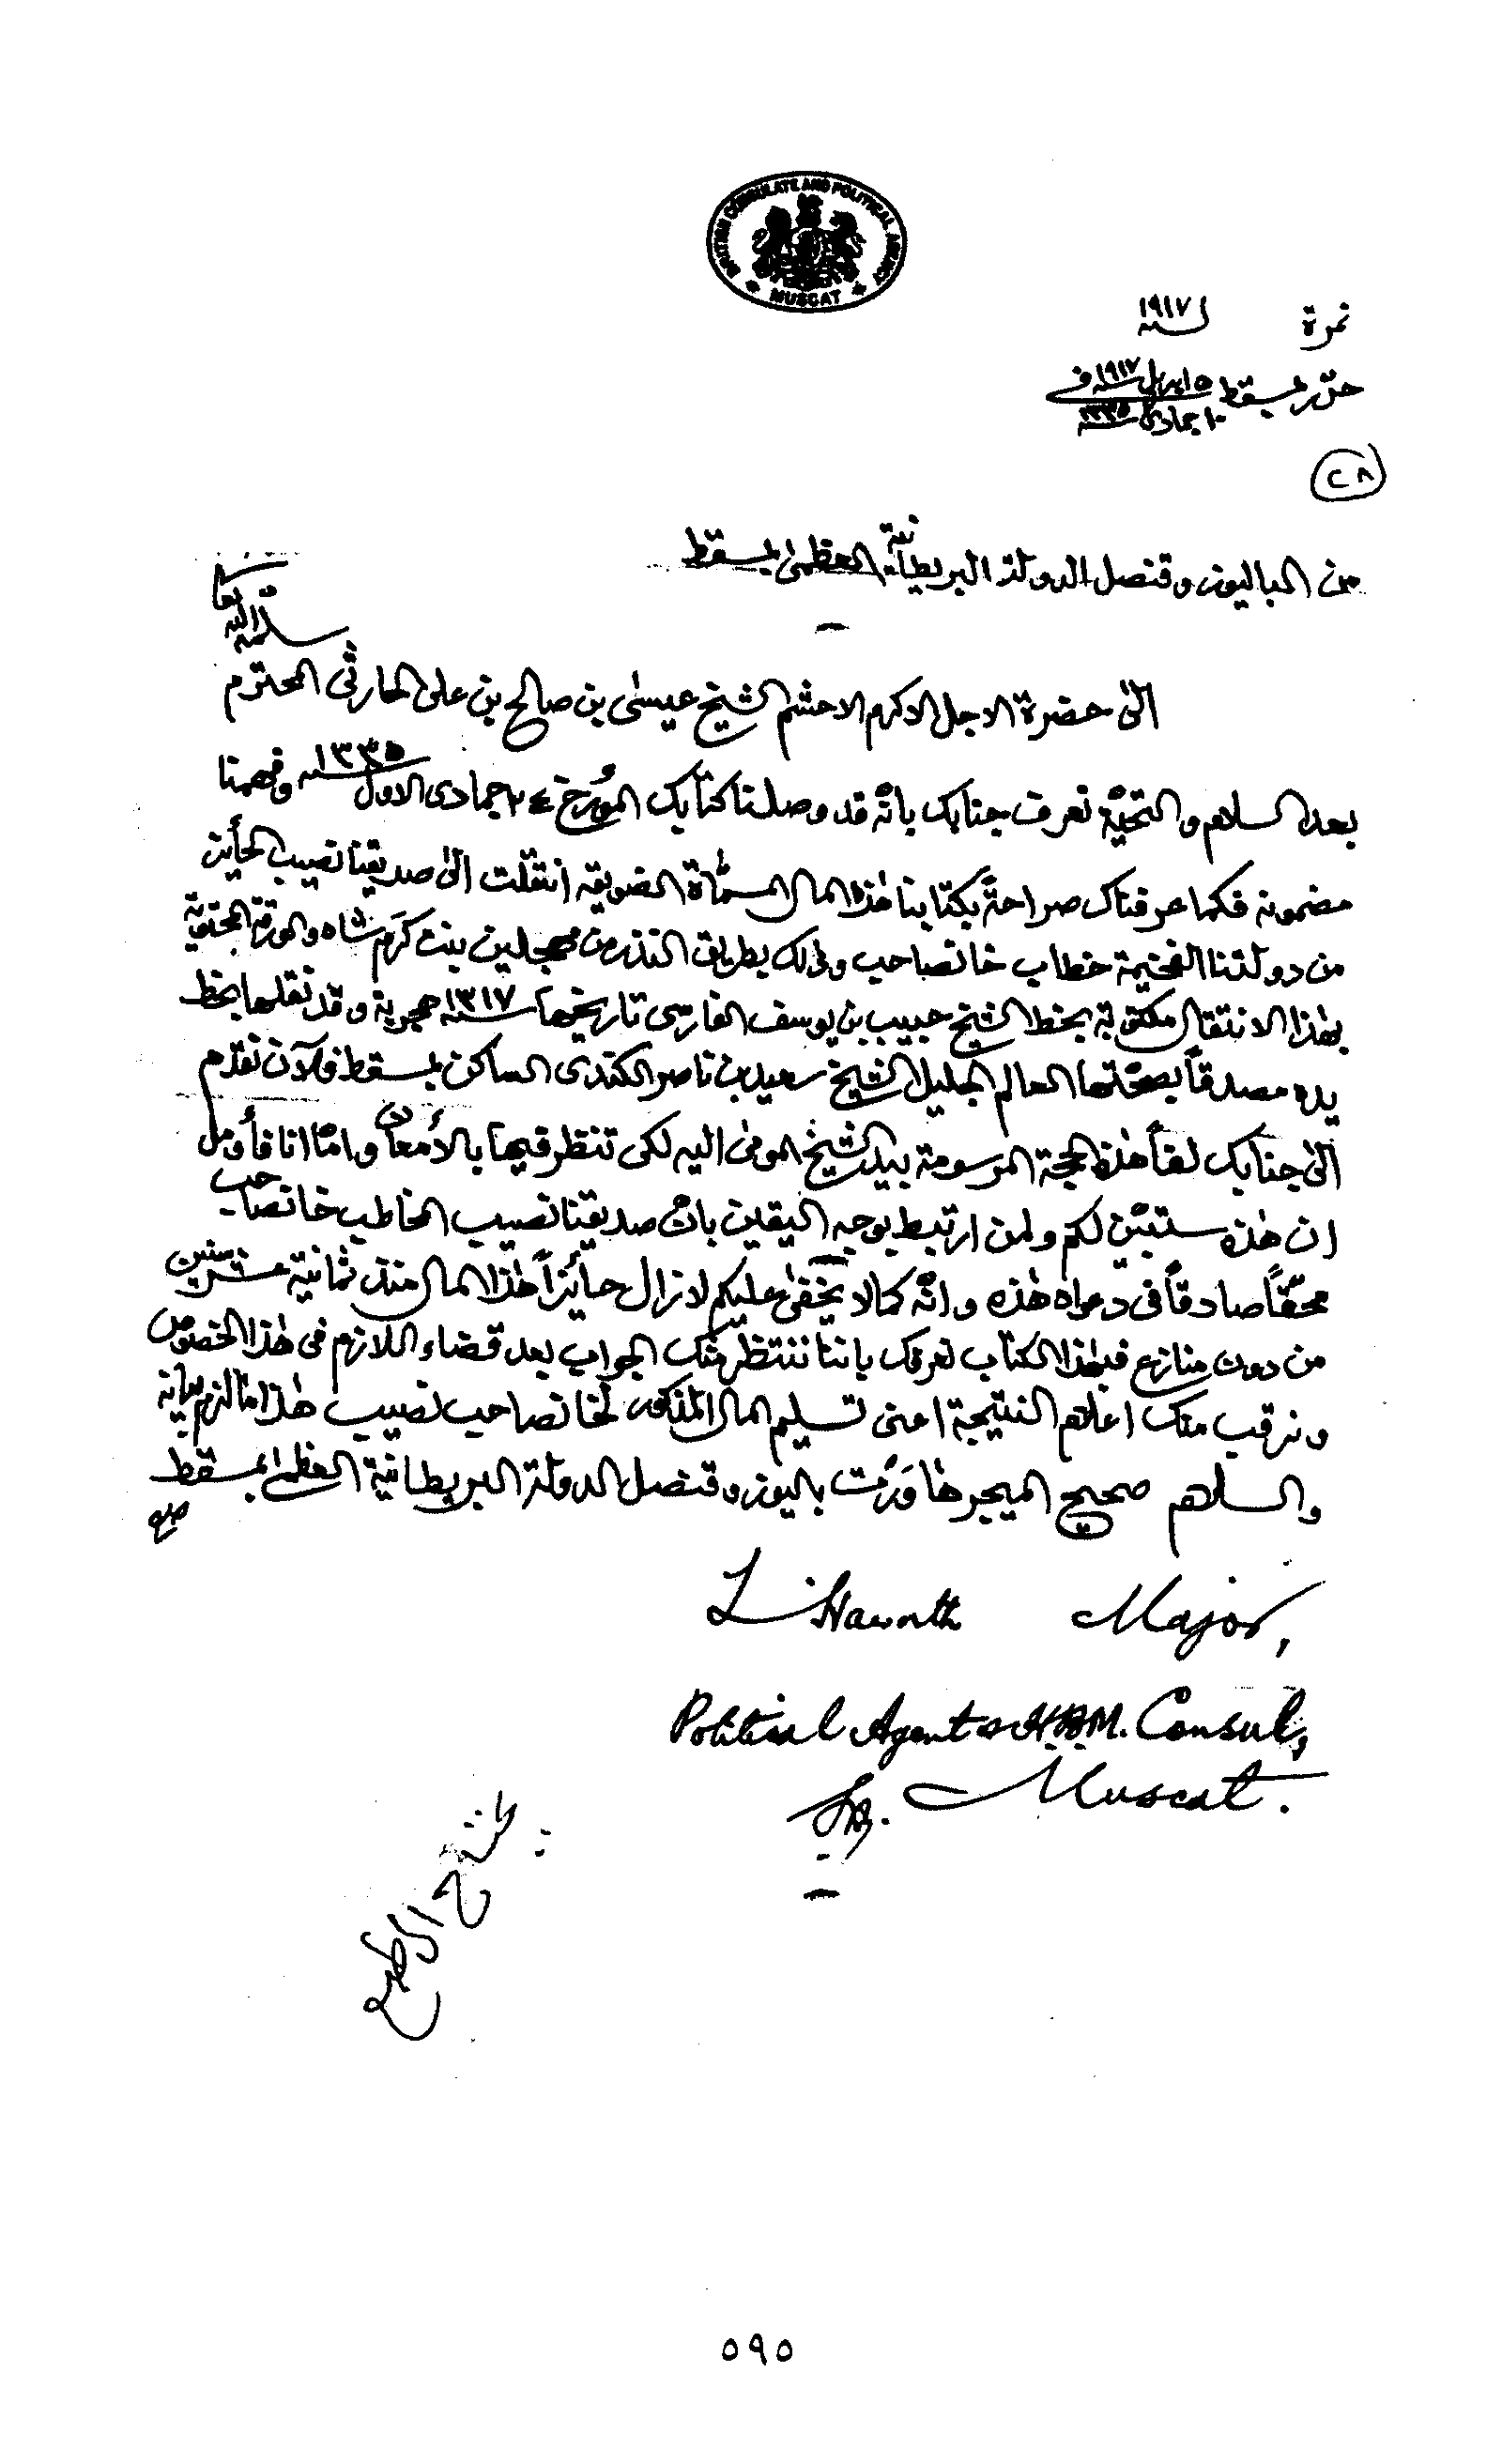 BRITISH CONSULATE AND POLITICAL AGENCY
MUSCAT
نمرة سنه ١٩١٧
حرّر بمسقط ١٥ ابريل سنه ١٩١٧ في
جمادى سنه ١٣٣٥
٢٨
من الباليوز وقنصل الدولة البريطانية العظمىٰ بمسقط
سلمه الله تعا
الىٰ حضرة الاجل الاكرم الاحشم الشيخ عيسىٰ بن صالح بن علي الحارثي المحترم
بعد السلام والتحيّة نعرف جنابك بانّه قد وصلنا كتابك المؤرخ ٢٤ جمادى الاول سنه ١٣٣٥ وفهمنا
مضمونه فكما عرفناك صراحةً بكتابنا هٰذا المال المسمّاة الضويقه انتقلت الىٰ صديقنا نصيب الحأيز
من دولتنا الفخيمة خطاب خانصاحب وذلك بطريق النذر من مهجلين بنت كرم شاه والورقة المحتوية
بهٰذا الانتقال مكتوبة بخط الشيخ حبيب بن يوسف الفارسى تاريخها سنه ١٣١٧ هجرية وقد نقلها بخط
يده مصدقاً بصحّتها العالم الجليل الشيخ سعيد بن ناصر الكندى الساكن بمسقط فالآن نقدم
الىٰ جنابك لفاً هٰذه الحجة المرسومة بيد الشيخ المومىٰ اليه لكى تنظر فيها بالأمعان وامّا انا فأومل
ان هٰذه ستبيّن لكم ولمن ارتبط بوجه اليقين بانّ صديقنا نصيب المخاطب خانصاحب
محقّاً صادقاً فى دعواه هٰذه وانّه كما لا يخفىٰ عليكم لازال حايزاً هٰذا المال منذ ثمانية عشر سنين
من دون منازع فبهٰذا الكتاب نعرفك باننا ننتظر منك الجواب بعد قضاء اللازم فى هٰذا الخصوص
ونرقب منك اعلام النتيجة اعنى تسليم المال المذكور لخانصاحب نصيب هٰذا ما لزم بيانه
والسلام صحيح الميجر هاورت باليوز وقنصل الدولة البريطانية العظمىٰ بمسقط
صح
L Haworth Major,
Political Agent & H.B.M. Consul,
Muscat.
٥٩٥